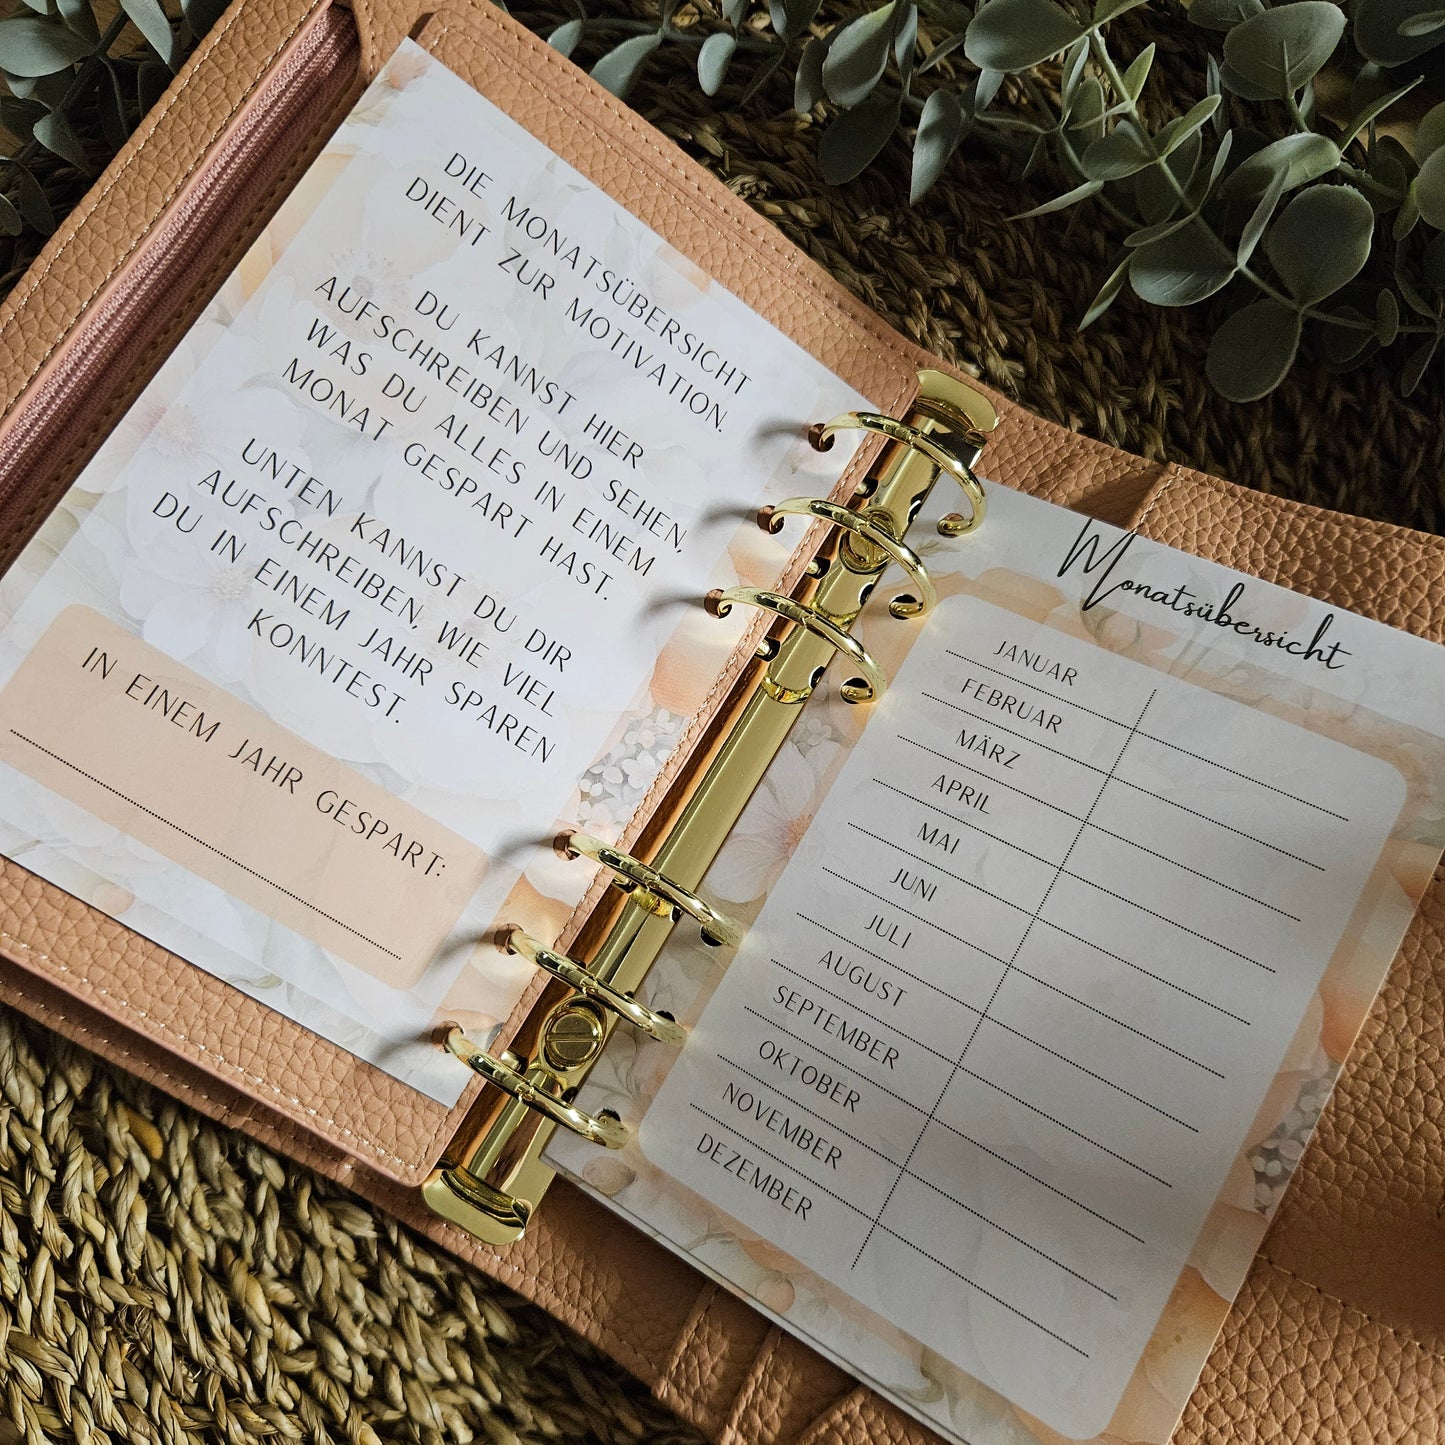 DIE MONATSÜBERSICHT
DIENT ZUR MOTIVATION.
DU KANNST HIER
AUFSCHREIBEN UND SEHEN,
WAS DU ALLES IN EINEM
MONAT GESPART HAST.
UNTEN KANNST DU DIR
AUFSCHREIBEN, WIE VIEL
DU IN EINEM JAHR SPAREN
KONNTEST.
IN EINEM JAHR GESPART:
Monatsübersicht
JANUAR
FEBRUAR
MÄRZ
APRIL
MAI
JUNI
JULI
AUGUST
SEPTEMBER
OKTOBER
NOVEMBER
DEZEMBER